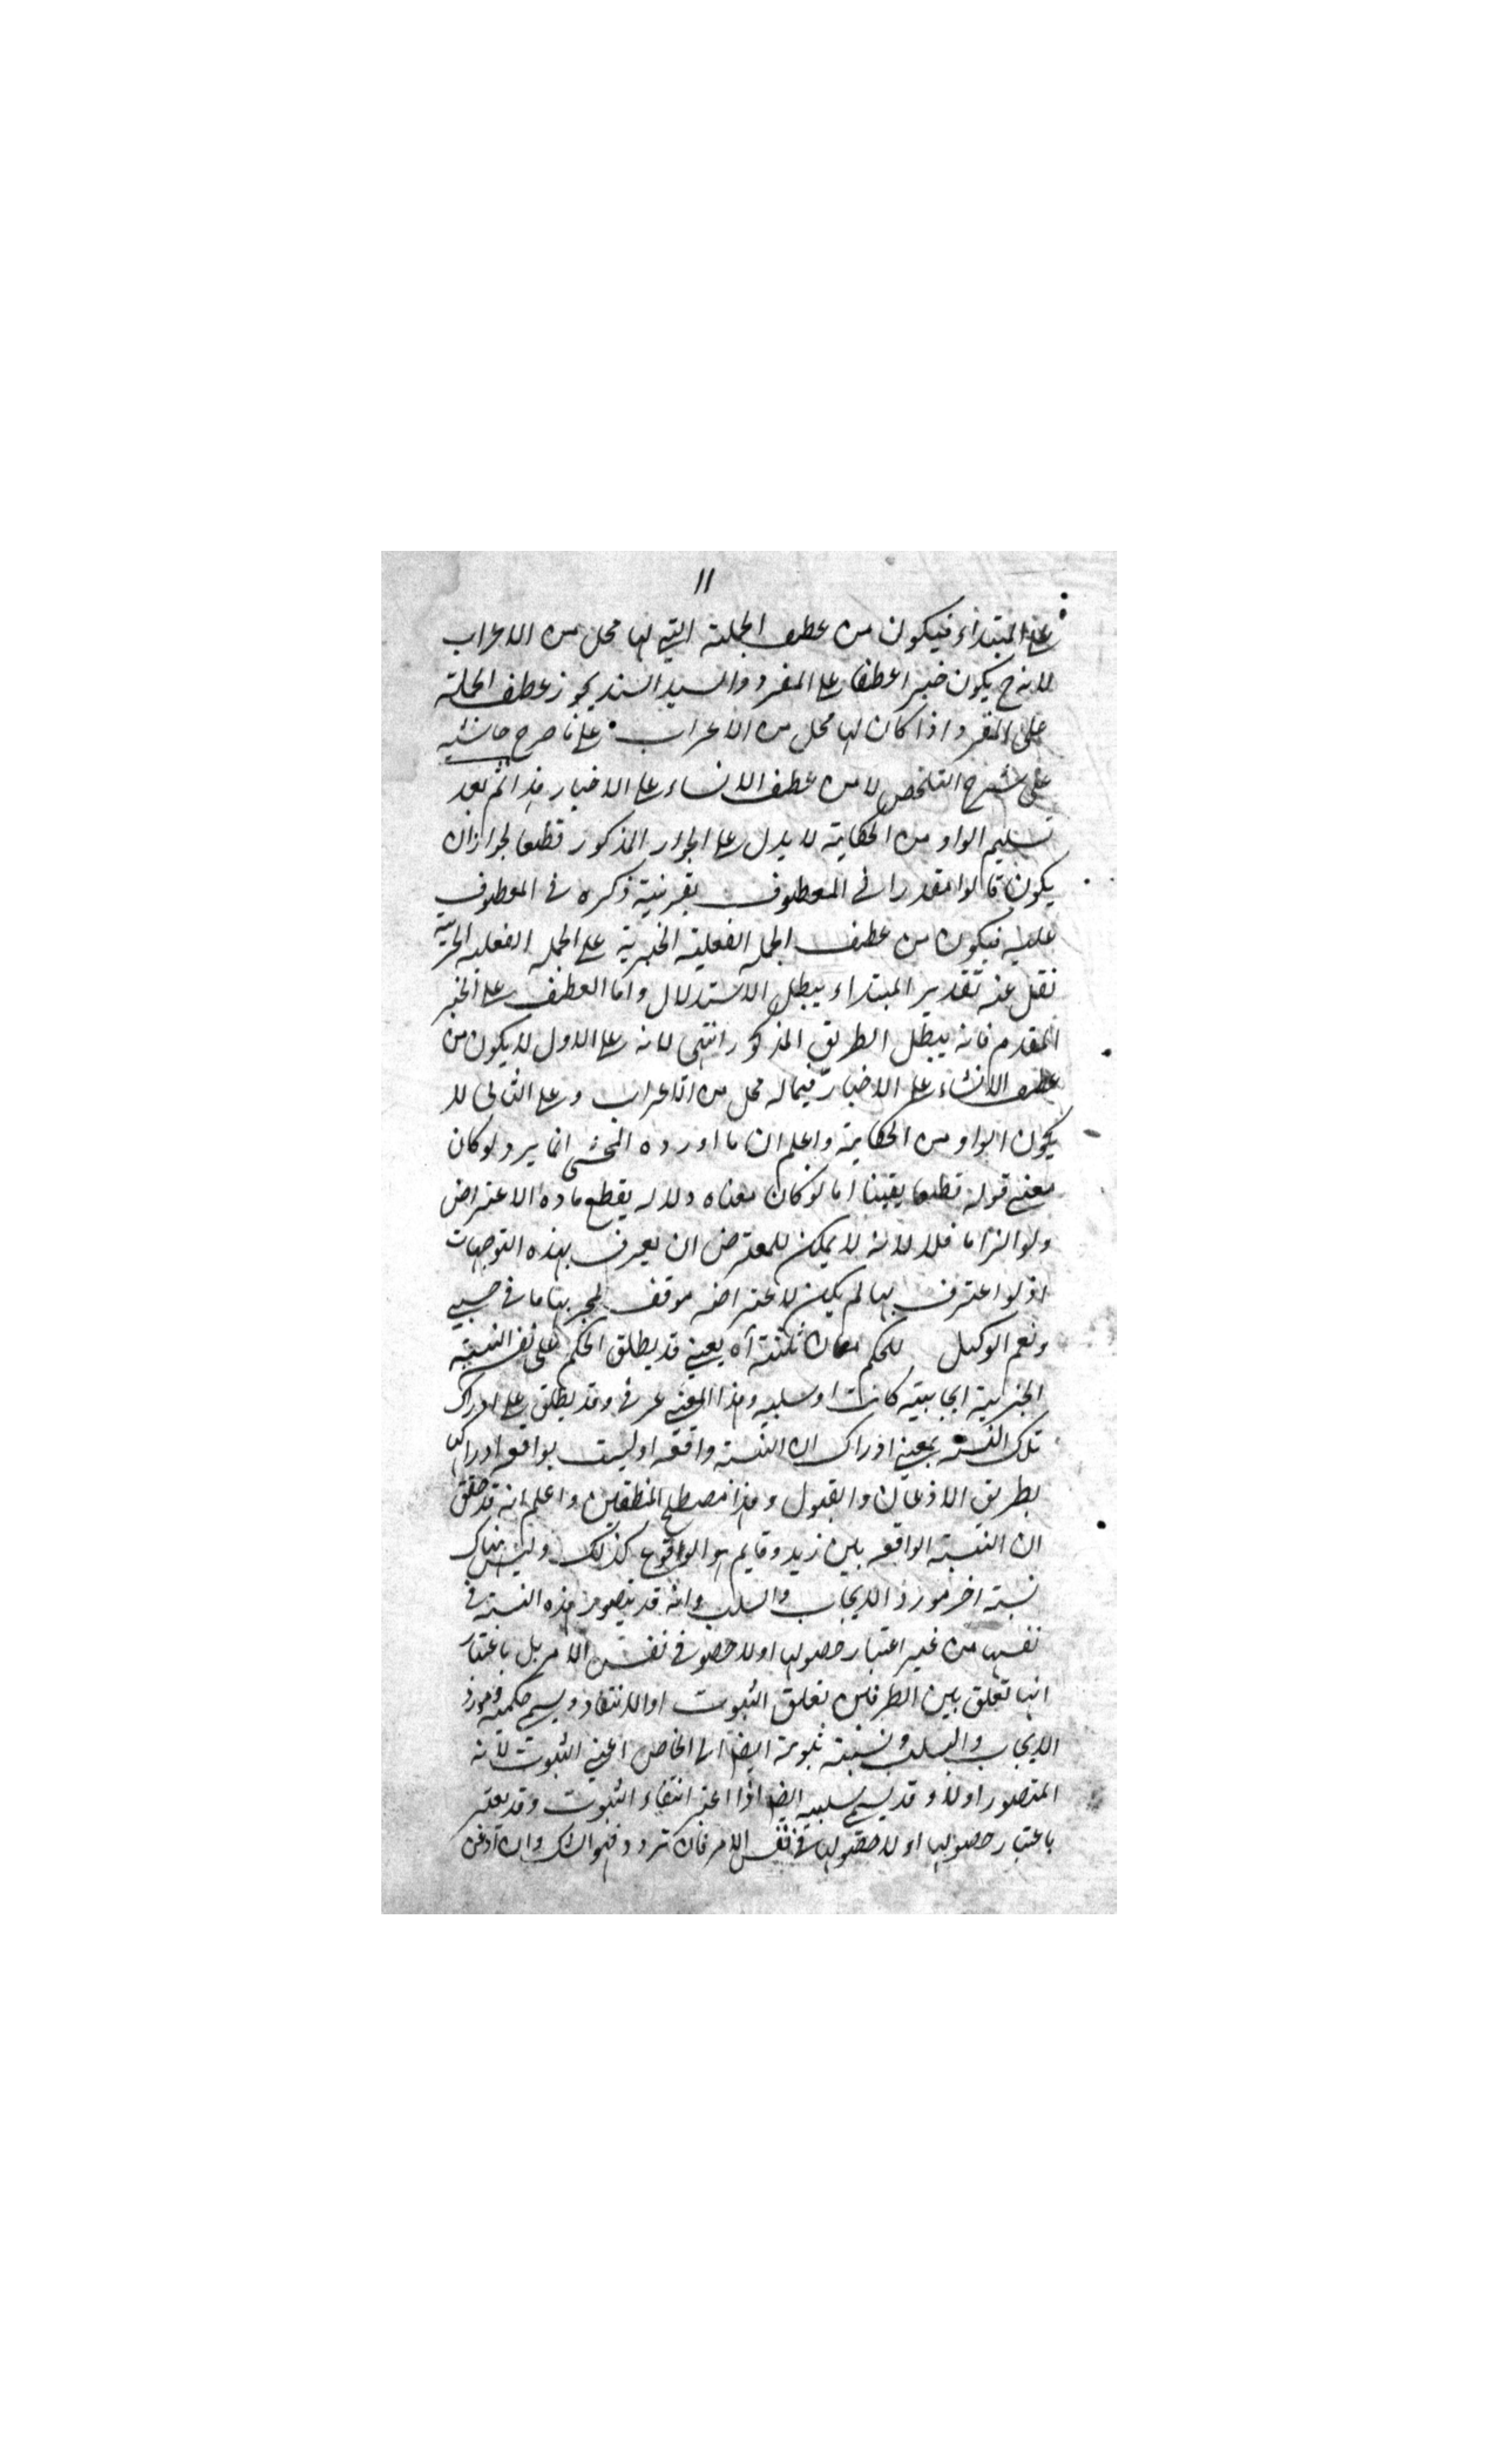 ١١
على المبتداء فيكون من عطف الجملة التي لها محل من الاعراب
لانه ح يكون خبرا عطفا على المفرد والسيد السند يجوز عطف الجملة
على المفرد اذا كان لها محل من الاعراب على ما صرح حاشية
على شرح التلخيص لا من عطف الانشاء على الاخبار هذا ثم بعد
تسليم الواو من الحكاية لا يدل على الجواز المذكور قطعا لجواز ان
يكون قالوا مقدرا في المعطوف بقرينة ذكره في المعطوف
عليه فيكون من عطف الجملة الفعلية الخبرية على الجملة الفعلية الخبرية
نقل عنه تقدير المبتداء يبطل الاستدلال واما العطف على الخبر
المقدم فانه يبطل الطريق المذكور انتهى لانه على الاول لا يكون من
عطف الانشاء على الاخبار فيما له محل من الاعراب وعلى الثاني لا
يكون الواو من الحكاية واعلم ان ما اورده المحشى انما يرد لو كان
معنى قوله قطعا يقينا اما لو كان معناه دلاله يقطع ماده الاعتراض
ولو الزاما فلا لانه لا يمكن للمعترض ان يعرف بهذه التوجيهات
اذ لو اعترف بها لم يكن لاعتراضه موقف لجريتها في حسبي
ونعم الوكيل للحكم معان ثلثة آه يعني قد يطلق الحكم على نفس النسبة
الخبرية ايجابية كانت او سلبيه وهذا المعنى عرفي وقد يطلق على ادراك
تلك النسبة بمعنى ادراك ان النسبة واقعه او ليست بواقعه ادراكها
بطريق الاذعان والقبول وهذا مصطلح المنطقيين واعلم انه قد حقق
ان النسبة الواقعه بين زيد وقايم هو الوقوع كذلك وليس هناك
نسبة اخر مورد الايجاب والسلب وانه قد يتصور هذه النسبة في
نفسها من غير اعتبار حصولها او لا حصولـ في نفس الامر بل باعتبار
انها تعلق بين الطرفين تعلق الثبوت او الانتفاء ويسمى حكمية ومورد
الايجاب والسلب ونسبة ثبوتية ايضا الى الخاص اعني الثبوت لانه
المتصور اولا وقد يسمى سلبيه ايضا اذا اعتبر انتفاء الثبوت وقد يعتبر
باعتبار حصولها او لا حصولها في نفس الامر فان تردد فهو الشك وان اذعن